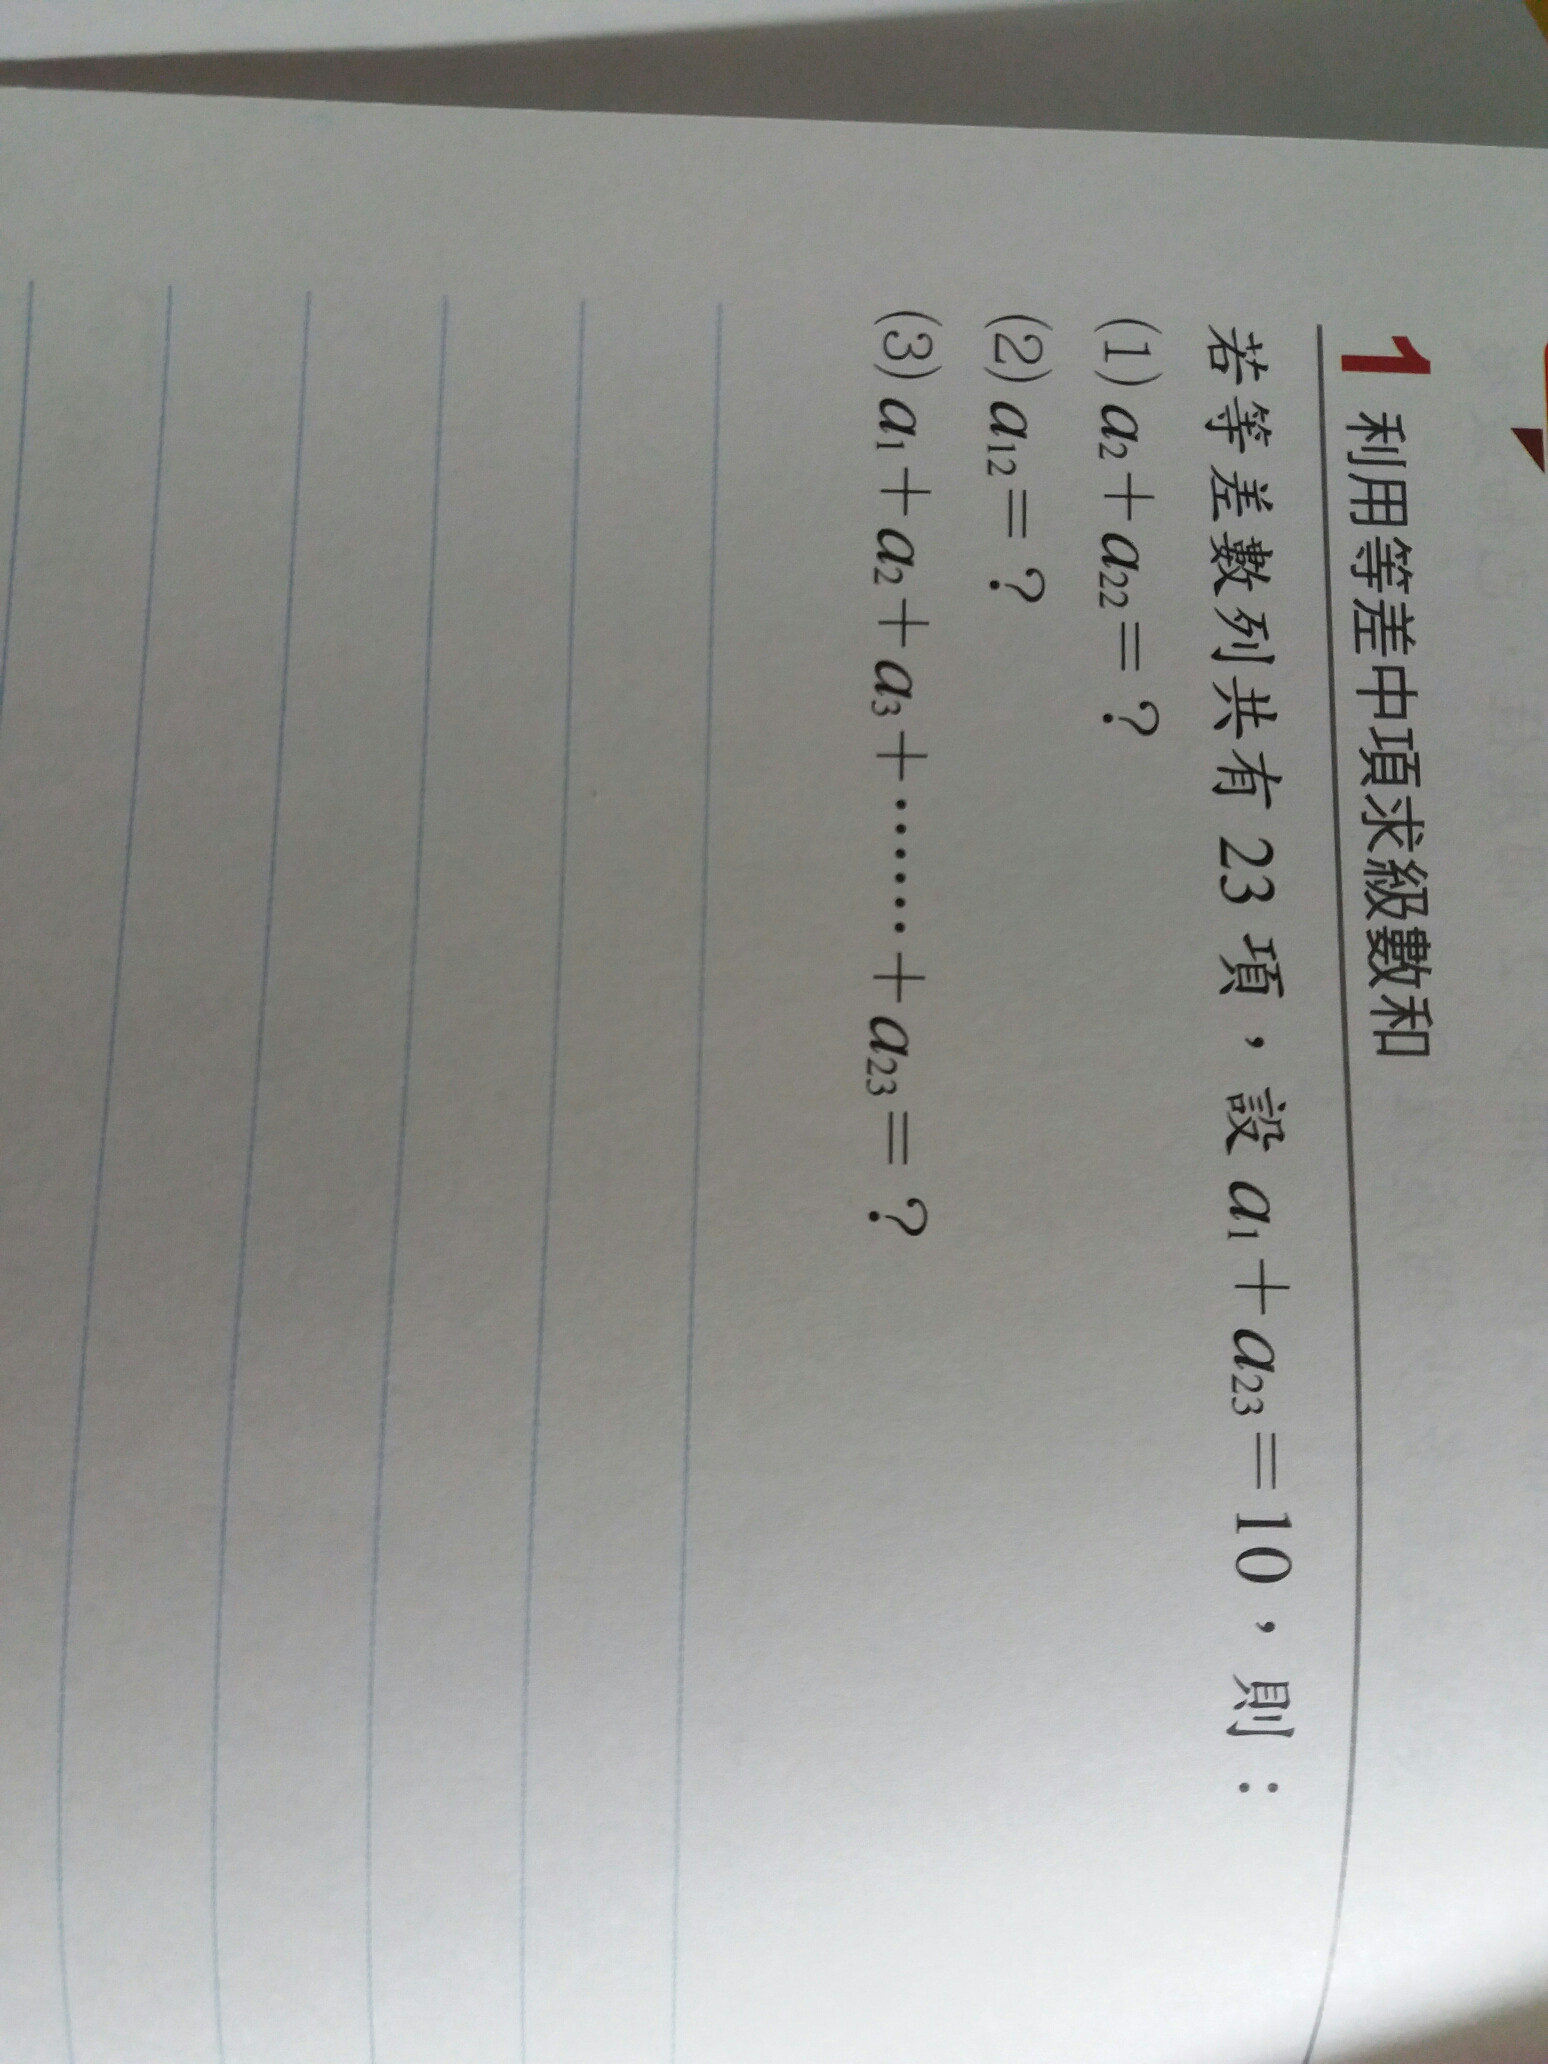 1 利用等差中項求級數和
若等差數列共有 23 項，設 a₁＋a₂₃＝10，則：
(1) a₂＋a₂₂＝？
(2) a₁₂＝？
(3) a₁＋a₂＋a₃＋……＋a₂₃＝？